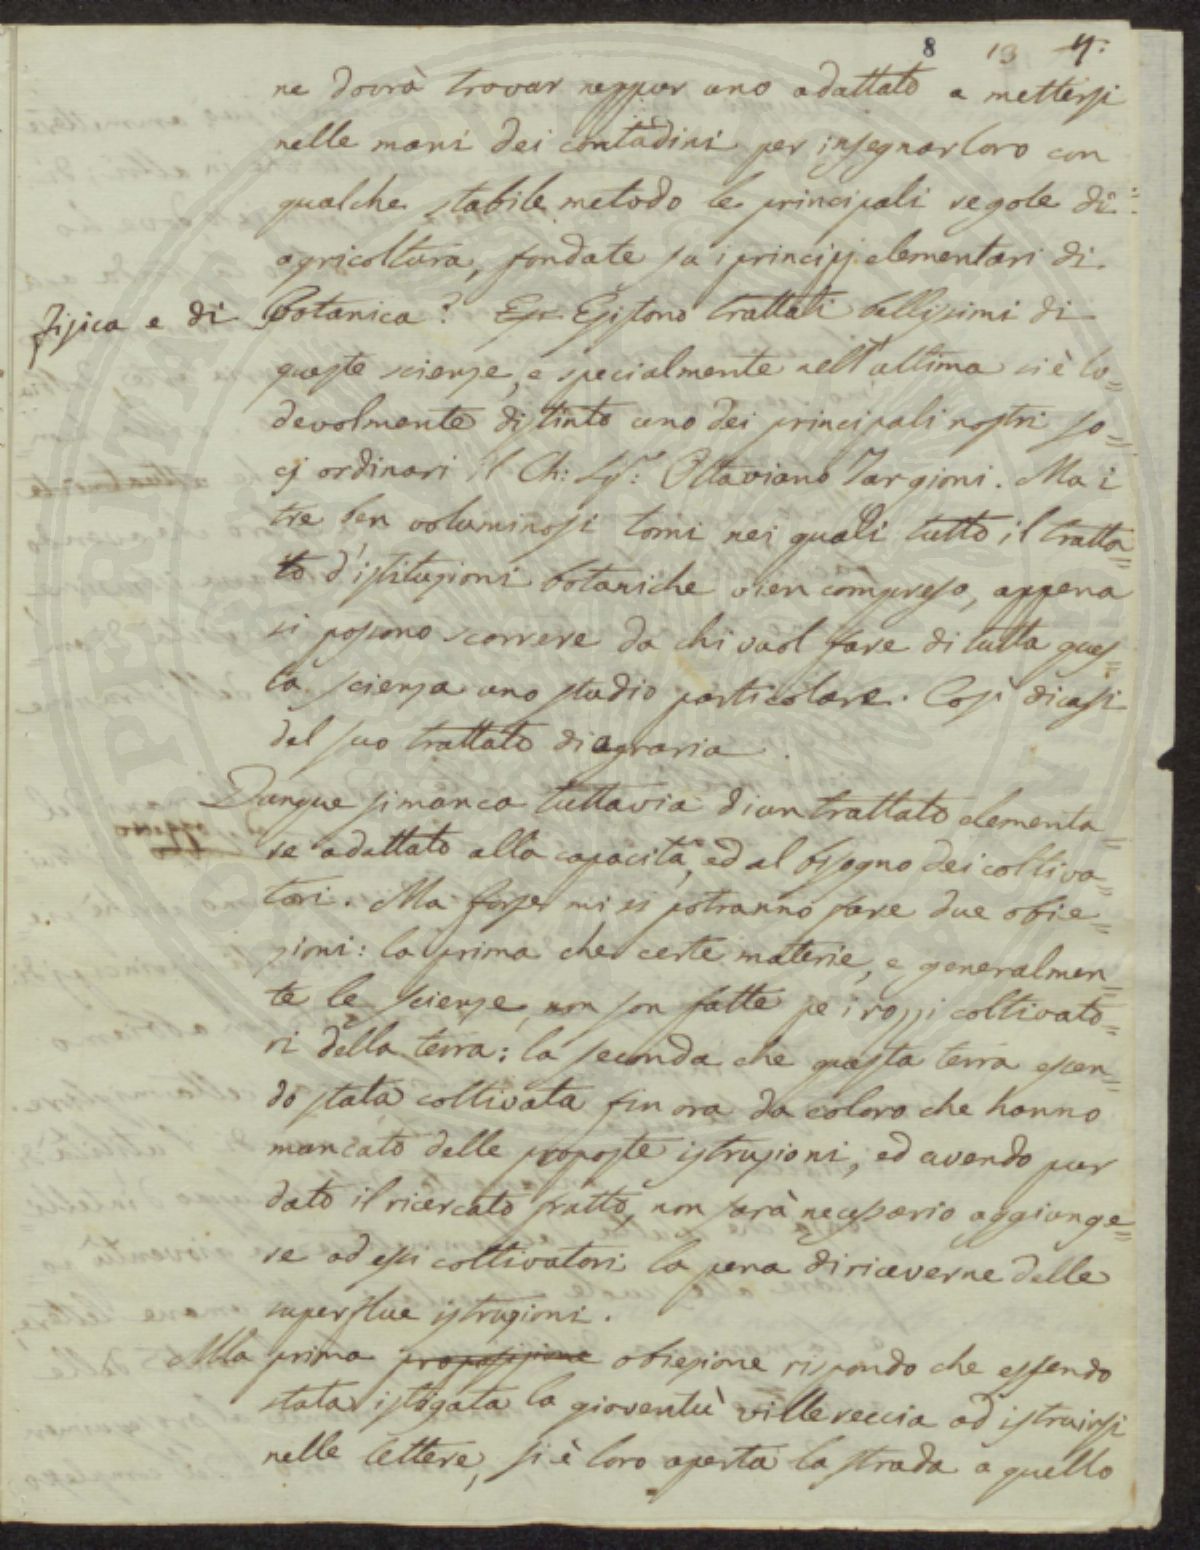 8 13 4:
ne dovrà trovar neppur uno adattato a mettersi
nelle mani dei contadini per insegnar loro con
qualche stabile metodo le principali regole di
agricoltura, fondate su i principj elementari di
fisica e di botanica? Esistono trattati bellissimi di
queste scienze, e specialmente nell'ultima si è lo=
devolmente distinto uno dei principali nostri so=
cj ordinari il Ch: Sig.r Ottaviano Targioni. Ma i
tre ben voluminosi tomi nei quali tutto il tratta=
to d'istituzioni botaniche vien compreso, appena
si possono scorrere da chi vuol fare di tutta ques=
ta scienza uno studio particolare. Così dicasi
del suo trattato di agraria.
Dunque si manca tuttavia di un trattato elementa=
re adattato alla capacità, ed al bisogno dei coltiva=
tori. Ma forse mi si potranno fare due obie=
zioni: la prima che certe materie, e generalmen=
te le scienze, non son fatte pe i rozzi coltivato=
ri della terra: la seconda che questa terra essen=
do stata coltivata fin ora da coloro che hanno
mancato delle proposte istruzioni, ed avendo pur
dato il ricercato frutto, non sarà necessario aggiunge=
re ad essi coltivatori la pena di riceverne delle
superflue istruzioni.
Alla prima proposizione obiezione rispondo che essendo
stata istigata la gioventù villereccia ad istruirsi
nelle lettere, si è loro aperta la strada a quello